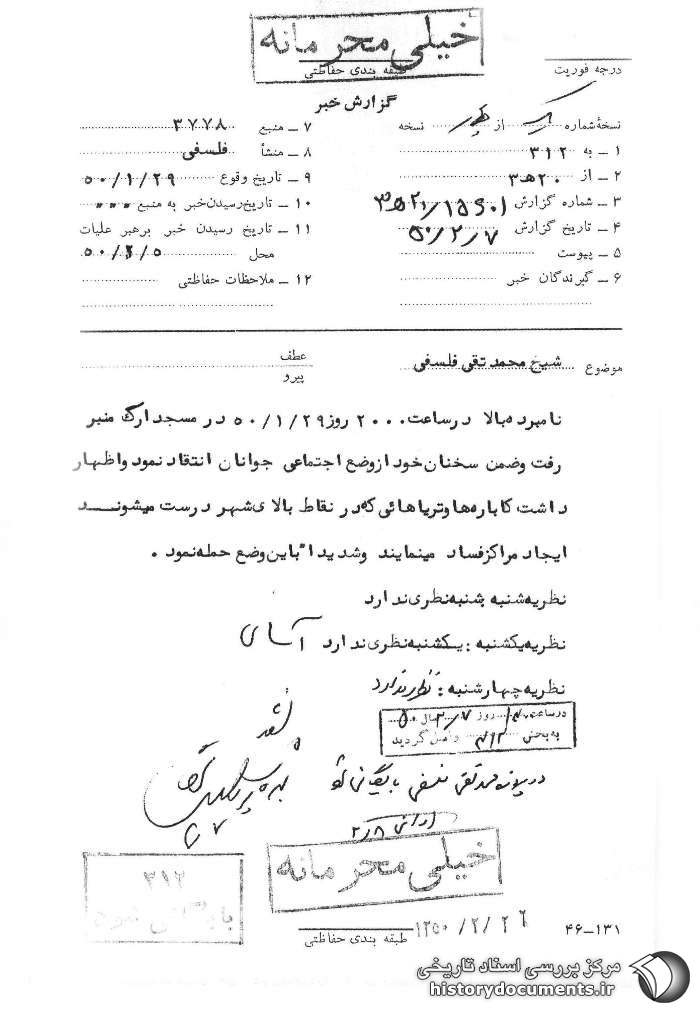 خیلی محرمانه
طبقه بندی حفاظتی
درجه فوریت
گزارش خبر
نسخهٔ شماره از نسخه
۱ ـ به ۳۱۲
۲ ـ از ۲۰ﻫ۳
۳ ـ شماره گزارش
۴ ـ تاریخ گزارش ۵۰/۲/۷
۵ ـ پیوست
۶ ـ گیرندگان خبر
۷ ـ منبع ۳۷۷۸
۸ ـ منشأ فلسفی
۹ ـ تاریخ وقوع ۵۰/۱/۲۹
۱۰ ـ تاریخ رسیدن خبر به منبع
۱۱ ـ تاریخ رسیدن خبر برهبر عملیات
محل ۵۰/۲/۵
۱۲ ـ ملاحظات حفاظتی
موضوع شیخ محمد تقی فلسفی
عطف
پیرو
نامبرده بالا در ساعت ۲۰۰۰ روز ۵۰/۱/۲۹ در مسجد ارک منبر
رفت و ضمن سخنان خود از وضع اجتماعی جوانان انتقاد نمود و اظهار
داشت کاباره‌ها و تریاهائی که در نقاط بالای شهر درست میشوند
ایجاد مراکز فساد مینمایند و شدیدا" باین وضع حمله نمود .
نظریه شنبه شنبه نظری ندارد
نظریه یکشنبه : یکشنبه نظری ندارد
نظریه چهارشنبه : نظری ندارد
در ساعت روز ۲/۷ سال ۵۰
به بخش ۳۱۲ واصل گردید
در پرونده محمد تقی فلسفی بایگانی شود
۲/۸
خیلی محرمانه
۳۱۲
بایگانی شود
۱۳۵۰/۲/۲۶
طبقه بندی حفاظتی
۴۶ـ۱۳۱
مرکز بررسی اسناد تاریخی
historydocuments.ir